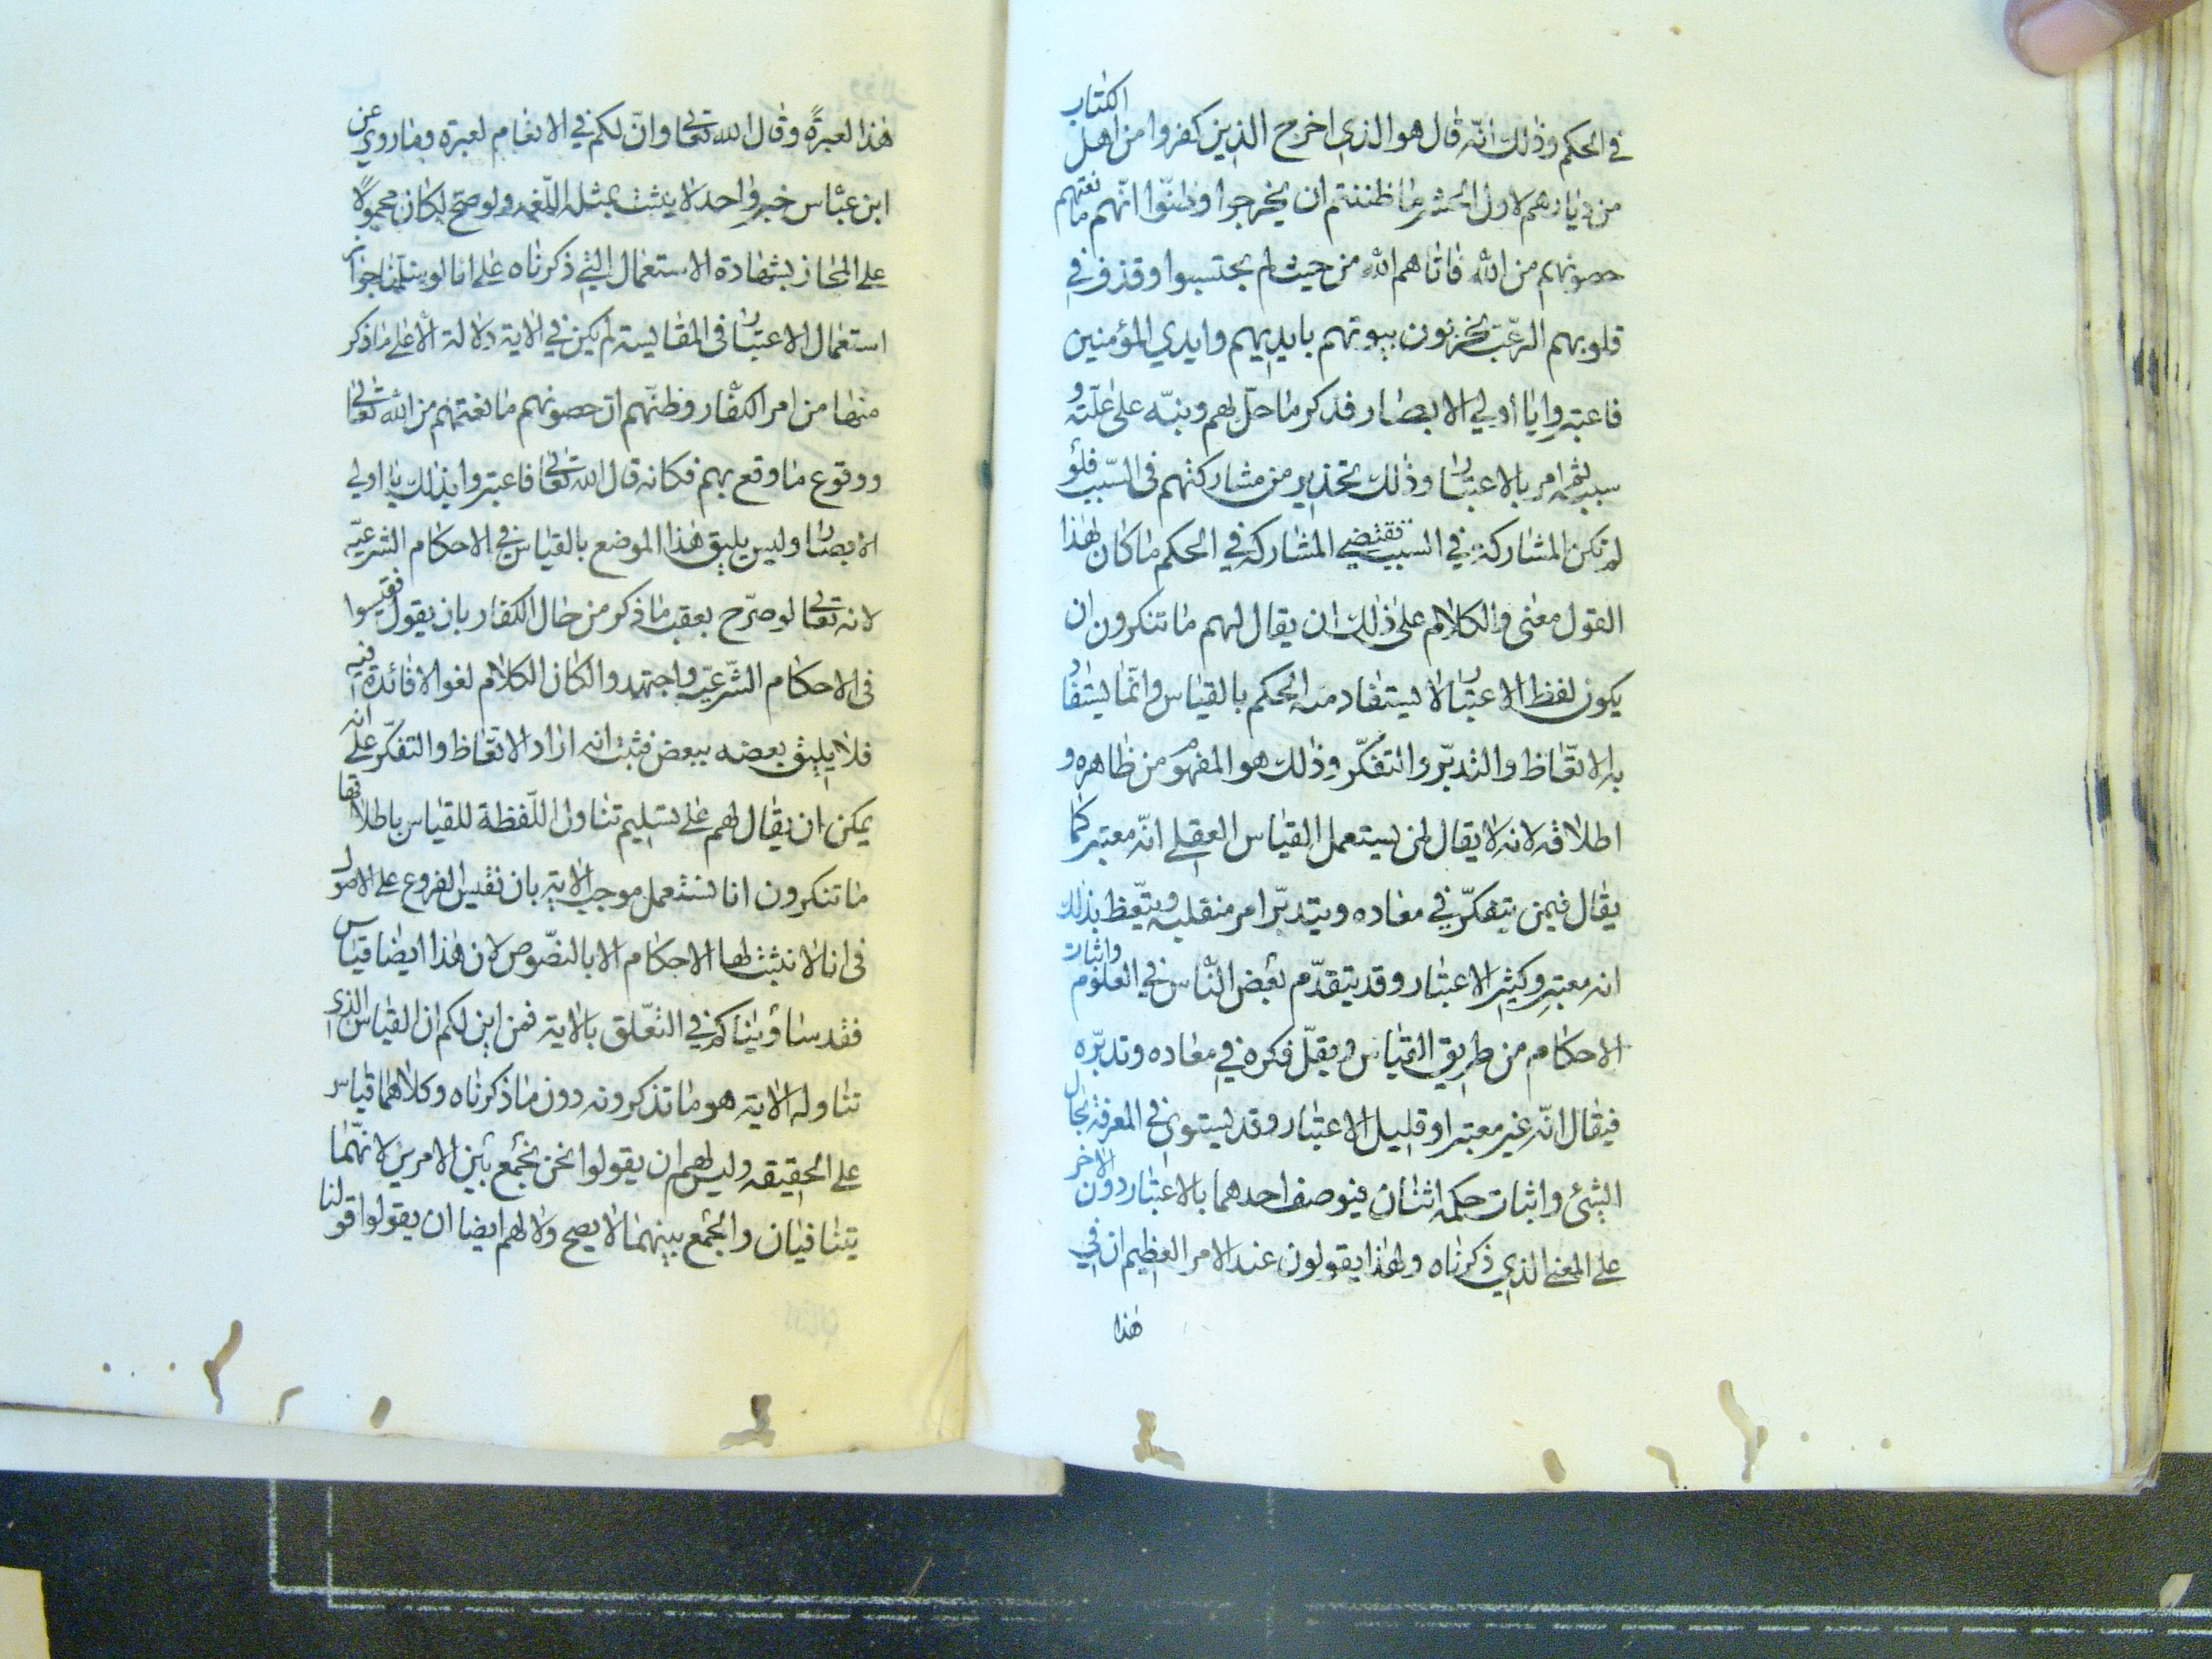 في الحكم وذلك انّه قال هو الذي اخرج الذين كفروا من اهل الكتاب
من ديارهم لاول الحشر ما ظننتم ان يخرجوا وظنّوا انّهم مانعتهم
حصونهم من الله فاتاهم الله من حيث لم يحتسبوا وقذف في
قلوبهم الرعب يخربون بيوتهم بايديهم وايدي المؤمنين
فاعتبروا يا اولي الابصار فذكر ما حلّ بهم ونبّه على علّته و
سببه ثم امر بالاعتبار وذلك تحذير من مشاركتهم في السّبب فلو
لم تكن المشاركة في السبب تقتضي المشاركة في الحكم ما كان لهذا
القول معنى والكلام على ذلك ان يقال لهم ما تنكرون ان
يكون لفظ الاعتبار لا يستفاد منه الحكم بالقياس وانّما يستفاد
به الاتّعاظ والتدبّر والتفكّر وذلك هو المفهوم من ظاهره و
اطلاقه لانه لا يقال لمن يستعمل القياس العقلي انّه معتبر كما
يقال فيمن يتفكّر في معاده ويتدبّر امر منقلبه ويتّعظ بذلك
انه معتبر وكثير الاعتبار وقد يتقدّم بعض النّاس في العلوم واثبات
الاحكام من طريق القياس ويقلّ فكره في معاده وتدبّره
فيقال انّه غير معتبر او قليل الاعتبار وقد يستوي في المعرفة بحال
الشئ واثبات حكمه اثنان فيوصف احدهما بالاعتبار دون الاخر
على المعنى الذي ذكرناه ولهذا يقولون عند الامر العظيم ان في
هذا
هذا لعبرةً وقال الله تعالى وانّ لكم في الانعام لعبرة وما روي عن
ابن عبّاس خبر واحد لا يثبت بمثله اللّغه ولو صحّ لكان محمولًا
على المجاز بشهادة الاستعمال التي ذكرناه على انا لو سلّمنا جواز
استعمال الاعتبار في المقايسة لم يكن في الاية دلالة الّا على ما ذكر
منها من امر الكفّار وظنّهم ان حصونهم مانعتهم من الله تعالى
ووقوع ما وقع بهم فكانه قال الله تعالى فاعتبروا بذلك يا اولي
الابصار وليس يليق هذا الموضع بالقياس في الاحكام الشرعيّه
لانه تعالى لو صرّح بعقب ما ذكر من حال الكفار بان يقول فقيسوا
في الاحكام الشّرعيّه واجتهدوا لكان الكلام لغوا لا فائدة فيه
فلا يليق بعضه ببعض فثبت انه اراد الاتّعاظ والتفكّر على انه
يمكن ان يقال لهم على تسليم تناول اللّفظة للقياس باطلاقها
ما تنكرون انا نستعمل موجب الاية بان نقيس الفروع على الاصول
في انا لا نثبث لها الاحكام الا بالنصّوص لان هذا ايضا قياس
فقد ساويناكم في التعّلق بالاية فمن اين لكم ان القياس الذي
تناوله الاية هو ما تذكرونه دون ما ذكرناه وكلاهما قياس
على الحقيقه وليس لهم ان يقولوا نحن نجمع بين الامرين لانّهما
يتنافيان والجمع بينهما لا يصح ولا لهم ايضا ان يقولوا قولنا